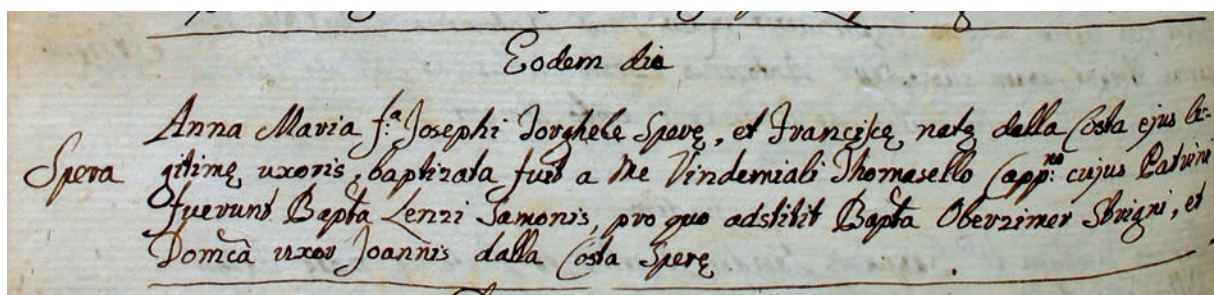 Eodem die
Anna Maria f:ª Josephi Torghele Sperę, et Franciscę natę dalla Costa ejus le-
Spera
gitimę uxoris, baptizata fuit a Me Vindemiali Thomasello Capp:no cujus Patrini
fuerunt Bapta Lenzi Samonis, pro quo adstitit Bapta Oberzimer Strigni, et
Domca uxor Joannis dalla Costa Sperę